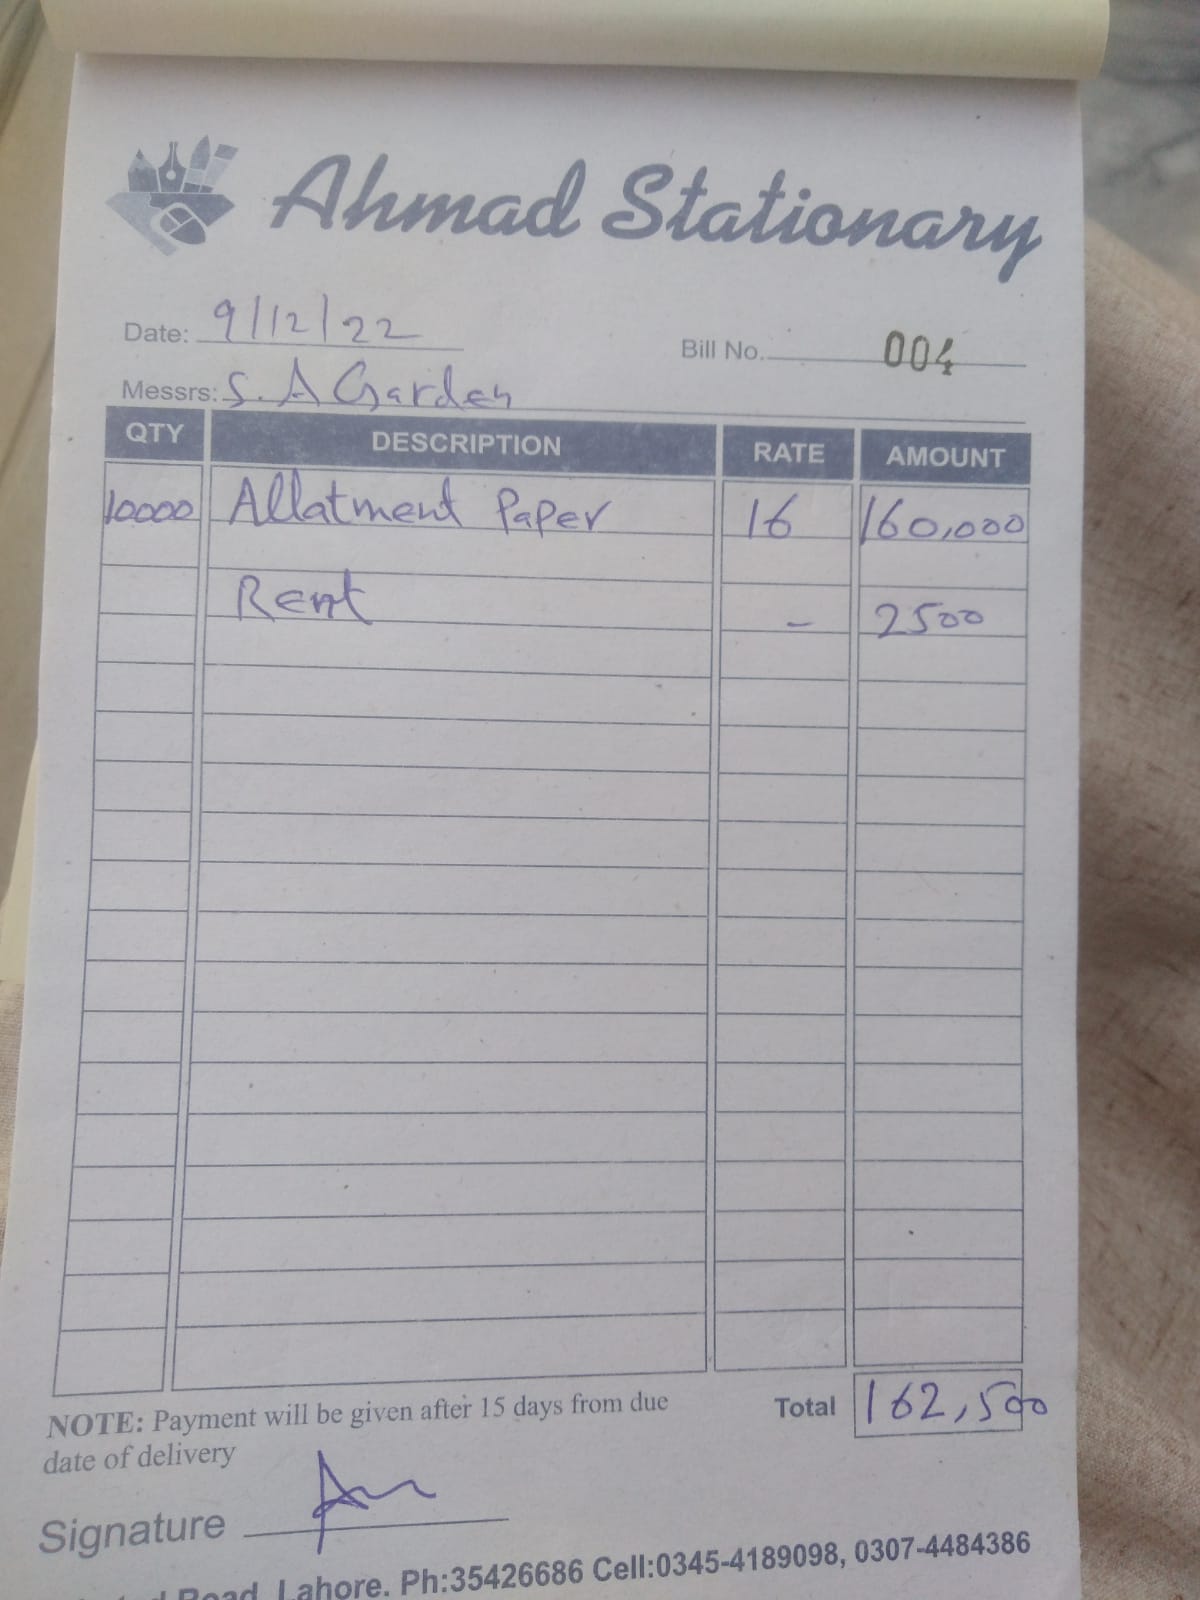 Ahmad Stationary
Date: 9/12/22
Bill No. 004
Messrs: S.A Garden
QTY DESCRIPTION RATE AMOUNT
10000 Allatment Paper 16 160,000
Rent - 2500
NOTE: Payment will be given after 15 days from due
date of delivery
Total 162,500
Signature
Road, Lahore. Ph:35426686 Cell:0345-4189098, 0307-4484386